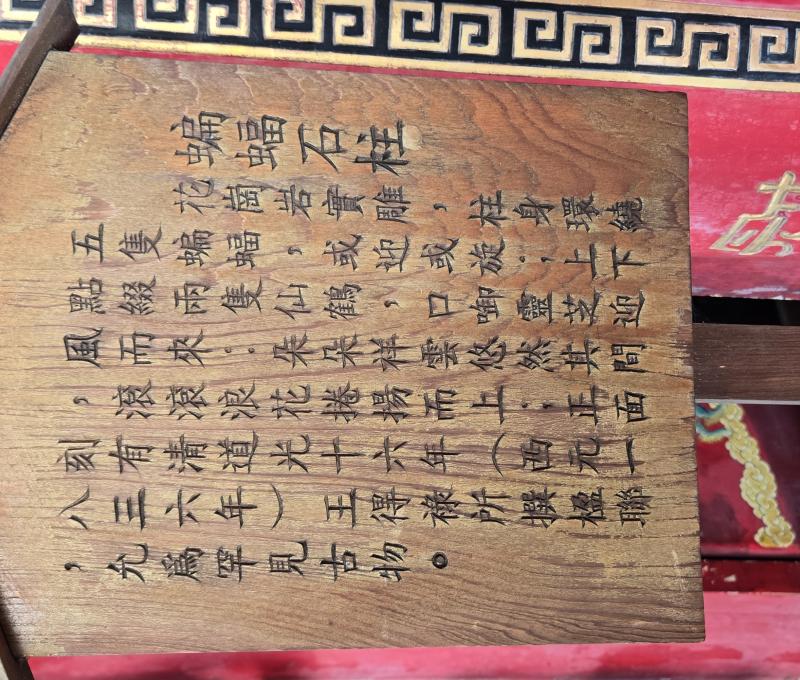 蝙蝠石柱
花崗岩實雕，柱身環繞
五隻蝙蝠，或迎或旋；上下
點綴兩隻仙鶴，口啣靈芝迎
風而來；朵朵祥雲悠然其間
，滾滾浪花捲揚而上；正面
刻有清道光十六年（西元一
八三六年）王得祿所撰楹聯
，允爲罕見古物。